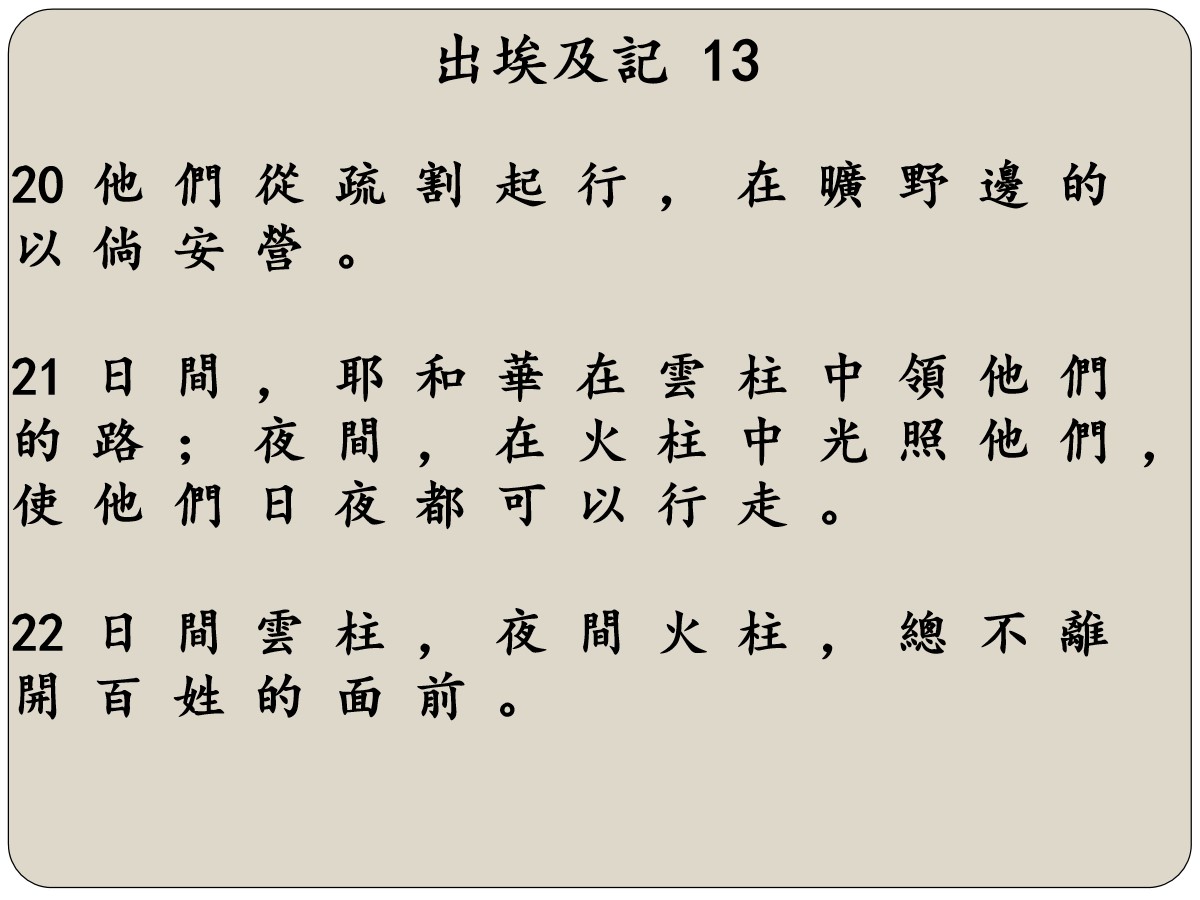 出埃及記 13
20 他 們 從 疏 割 起 行 ， 在 曠 野 邊 的
以 倘 安 營 。
21 日 間 ， 耶 和 華 在 雲 柱 中 領 他 們
的 路 ； 夜 間 ， 在 火 柱 中 光 照 他 們 ，
使 他 們 日 夜 都 可 以 行 走 。
22 日 間 雲 柱 ， 夜 間 火 柱 ， 總 不 離
開 百 姓 的 面 前 。